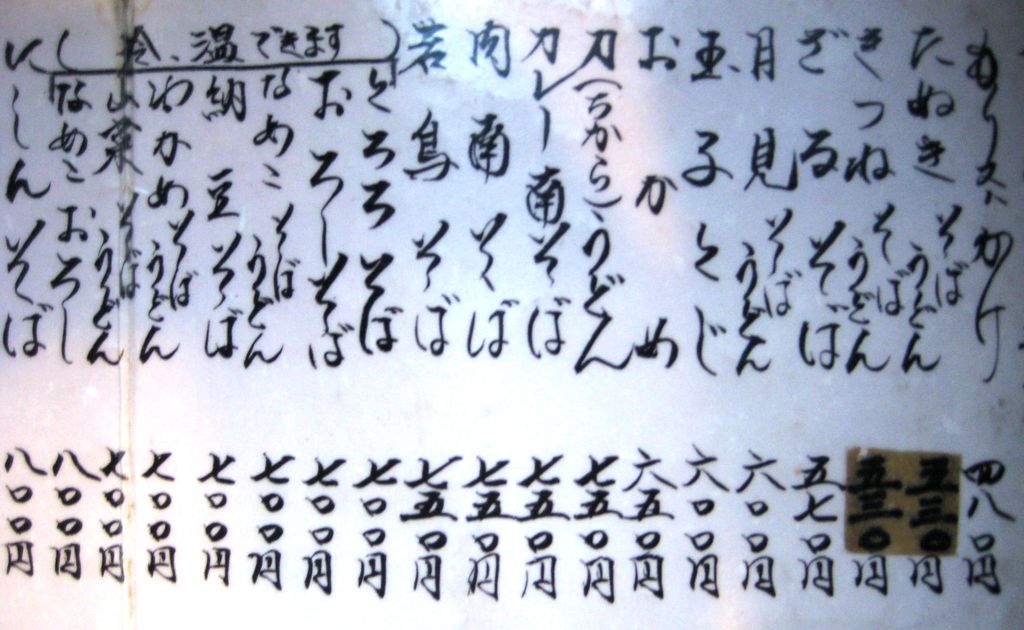 もり又ハかけ 四八〇円
たぬき そば うどん 五三〇円
きつね そば うどん 五三〇円
ざるそば 五七〇円
月見 そば うどん 六〇〇円
玉子とじ 六〇〇円
おかめ 六五〇円
力(ちから)うどん 七五〇円
カレー南そば 七五〇円
肉南そば 七五〇円
若鳥そば 七五〇円
(冷、温できます)
とろろそば 七〇〇円
おろしそば 七〇〇円
なめこ そば うどん 七〇〇円
納豆そば 七〇〇円
わかめ そば うどん 七〇〇円
山菜 そば うどん 七〇〇円
なめこおろし 八〇〇円
にしんそば 八〇〇円